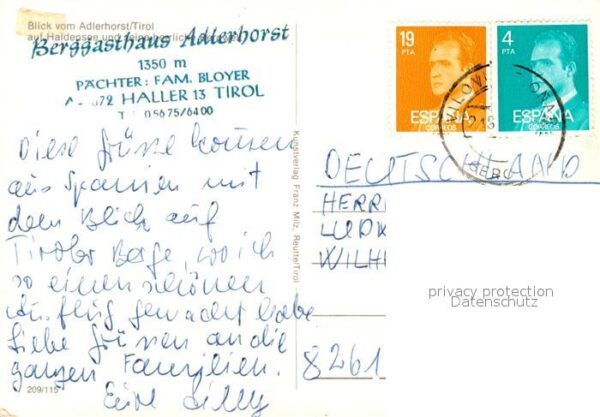 Blick vom Adlerhorst/Tirol
auf Haldensee und
Berggasthaus Adlerhorst
1350 m
PÄCHTER: FAM. BLOYER
A- 672 HALLER 13 TIROL
T 05675/6400
Diese Grüsse kommen
aus Spanien mit
dem Blick auf
Tiroler Berge, wo ich
so einen schönen
Ausflug gemacht habe
Liebe Grüsse an die
ganzen Familien.
Eure Lilly
209/115
Kunstverlag Franz Milz, Reutte/Tirol
19
PTA
ESPAÑA
CORREOS
4
PTA
ESPAÑA
CORREOS
DEUTSCHLAND
HERR
LUDW
WILH
8261
privacy protection
Datenschutz